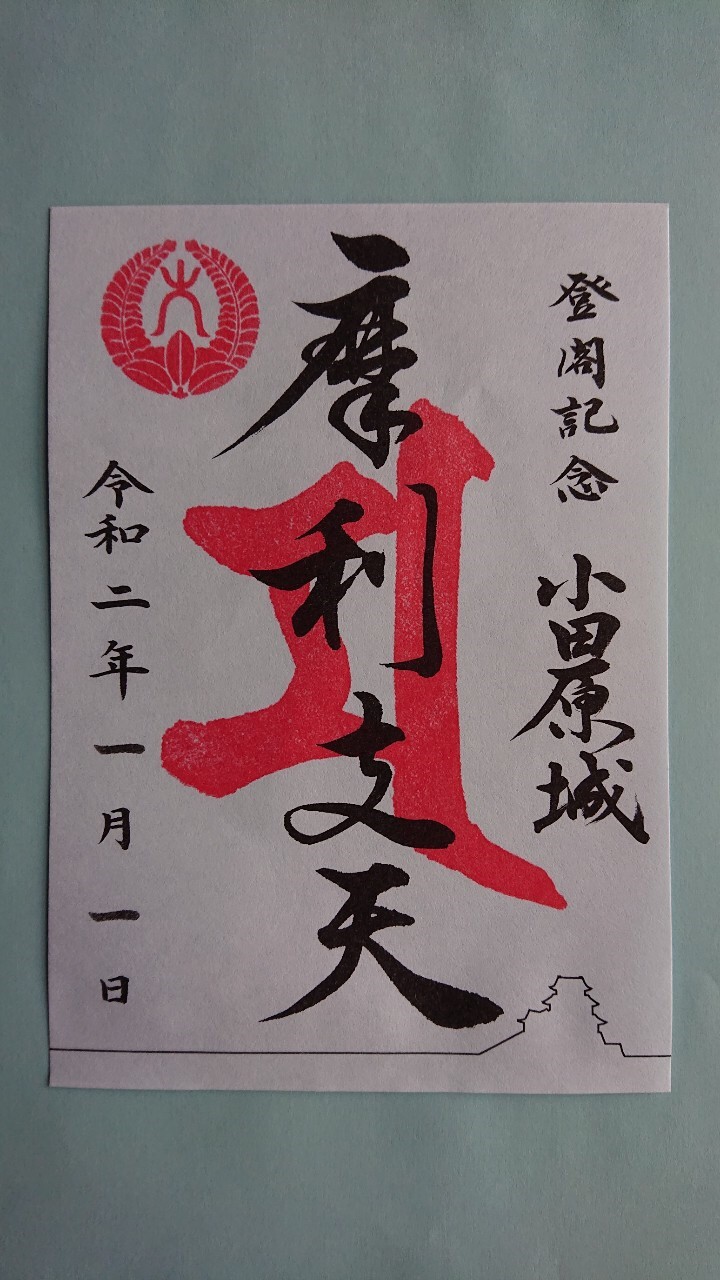 登閣記念 小田原城
摩利支天
令和二年一月一日